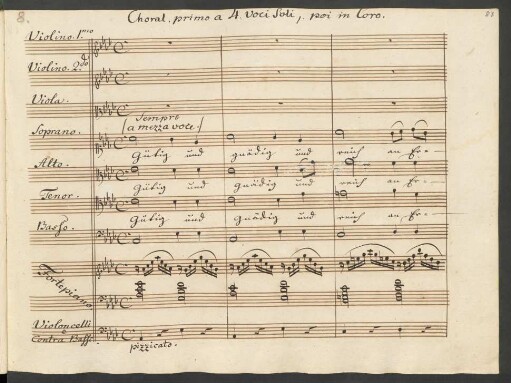 8.
Choral. primo a 4. Voci Soli, poi in Coro.
Violino. 1mo
Violino. 2do
Viola.
Soprano.
Sempre
a mezza voce.
Gütig und gnädig und reich an Er-
Alto.
Gütig und gnädig und reich an Er-
Tenor.
Gütig und gnädig und reich an Er-
Basso.
Fortepiano.
Violoncelli
e
Contra Bassi
pizzicato.